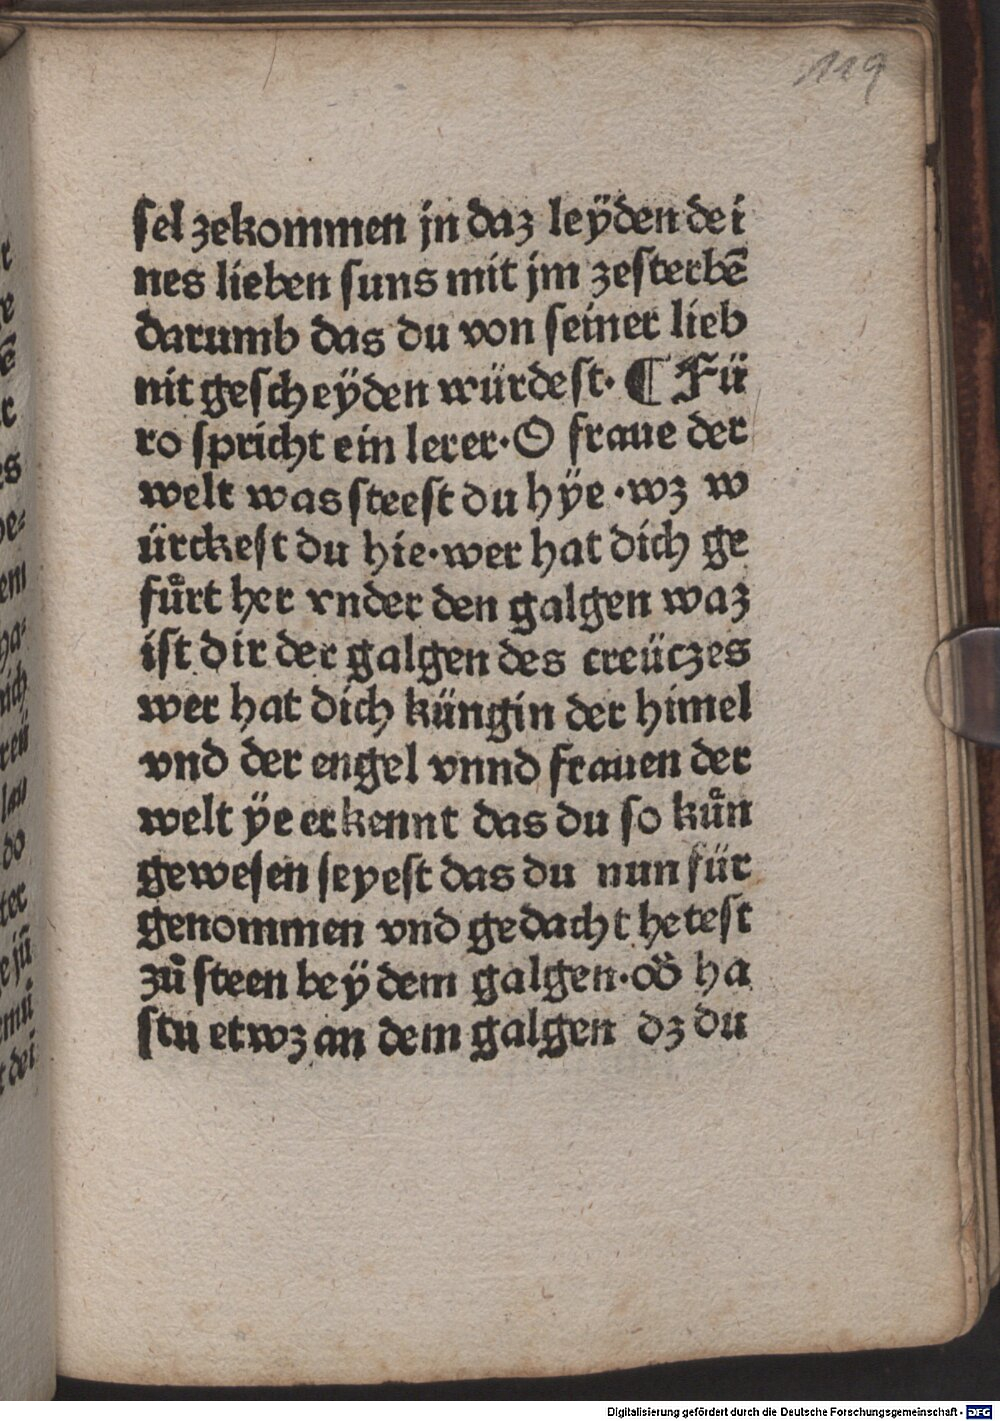 119
sel zekommen jn daz leÿden dei
nes lieben suns mit jm zesterbē
darumb das du von seiner lieb
nit gescheÿden würdest. ¶ Fü
ro spricht ein lerer. O fraue der
welt was steest du hÿe .wz w
ürckest du hie.wer hat dich ge
fůrt her vnder den galgen waz
ist dir der galgen des creüczes
wer hat dich küngin der himel
vnd der engel vnnd frauen der
welt ÿe erkennt das du so kůn
gewesen seyest das du nun für
genommen vnd gedacht hetest
zů steen beÿ dem galgen.oď ha
stu etwz an dem galgen dz du
Digitalisierung gefördert durch die Deutsche Forschungsgemeinschaft - DFG